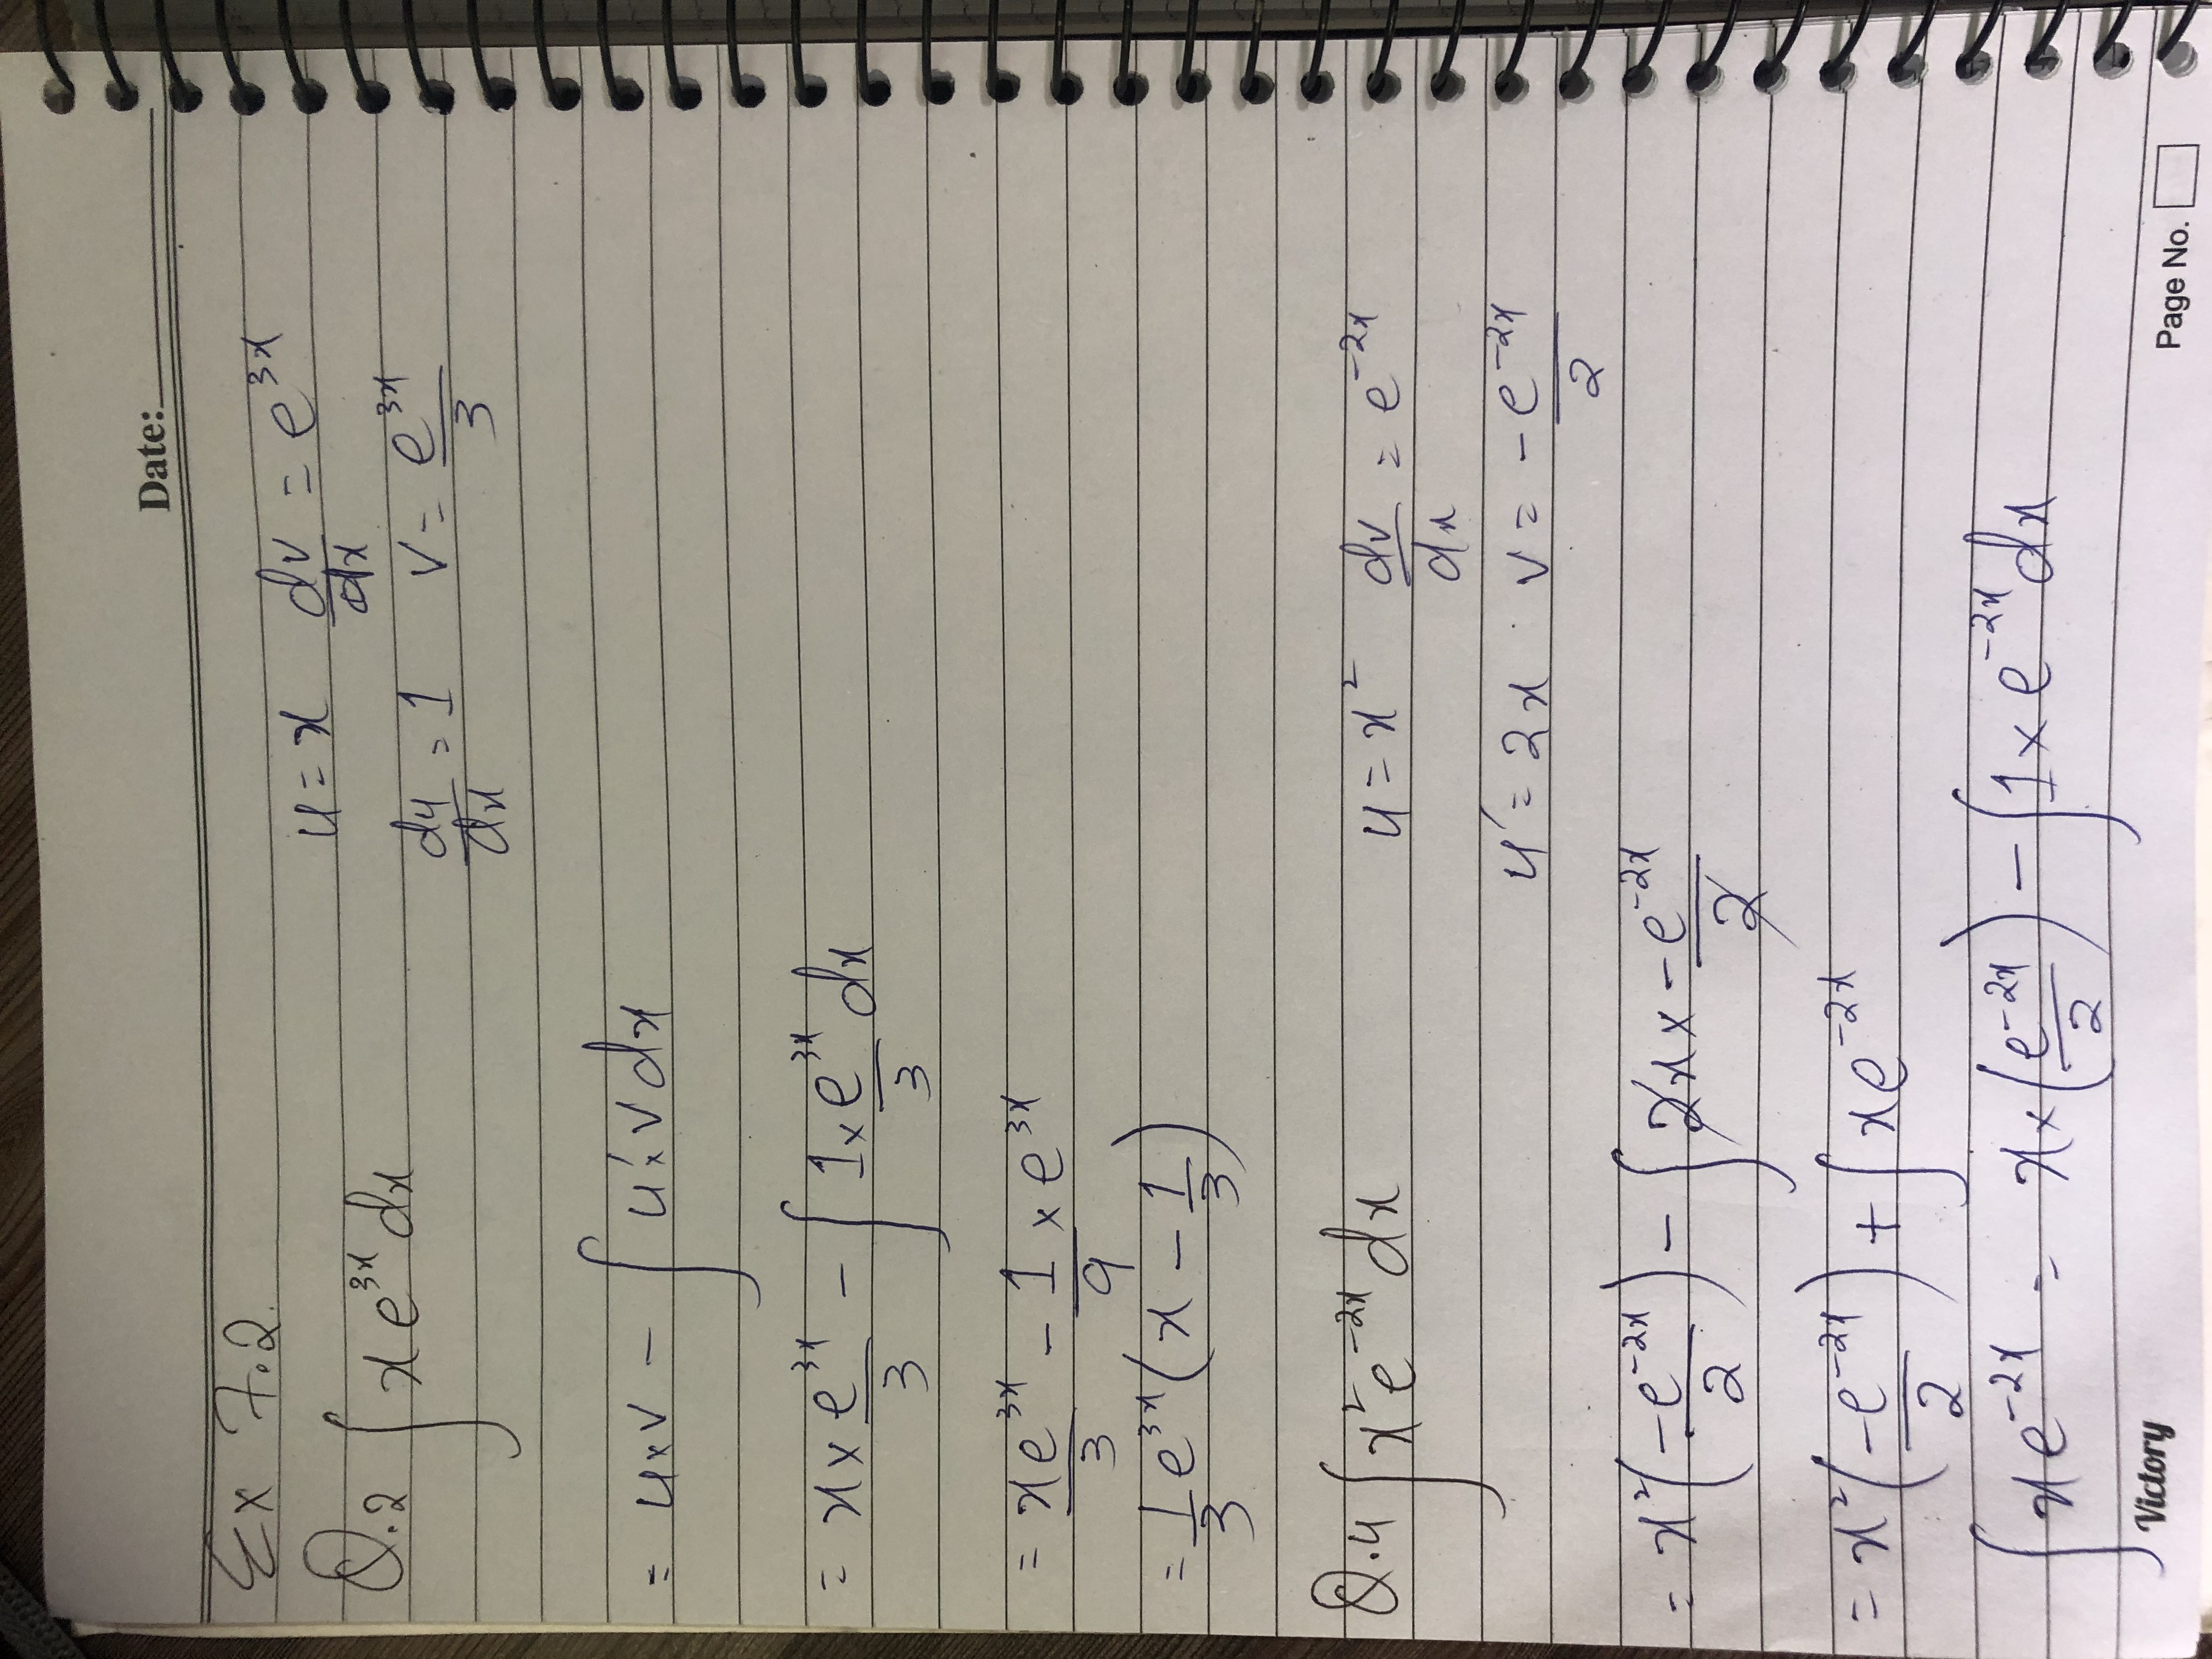 Date:
Ex 7.2.
Q.2 ∫ x e^{3x} dx
u = x dv/dx = e^{3x}
du/dx = 1 v = e^{3x}/3
= u×v − ∫ u'×v dx
= x × e^{3x}/3 − ∫ 1× e^{3x}/3 dx
= xe^{3x}/3 − 1/9 × e^{3x}
= 1/3 e^{3x} (x − 1/3)
Q.4 ∫ x² e^{−2x} dx
u = x² dv/dx = e^{−2x}
u' = 2x v = −e^{−2x}/2
= x² (−e^{−2x}/2) − ∫ 2x × −e^{−2x}/2
= x² (−e^{−2x}/2) + ∫ xe^{−2x}
∫ xe^{−2x} = x × (e^{−2x}/2) − ∫ 1 × e^{−2x} dx
Victory
Page No.